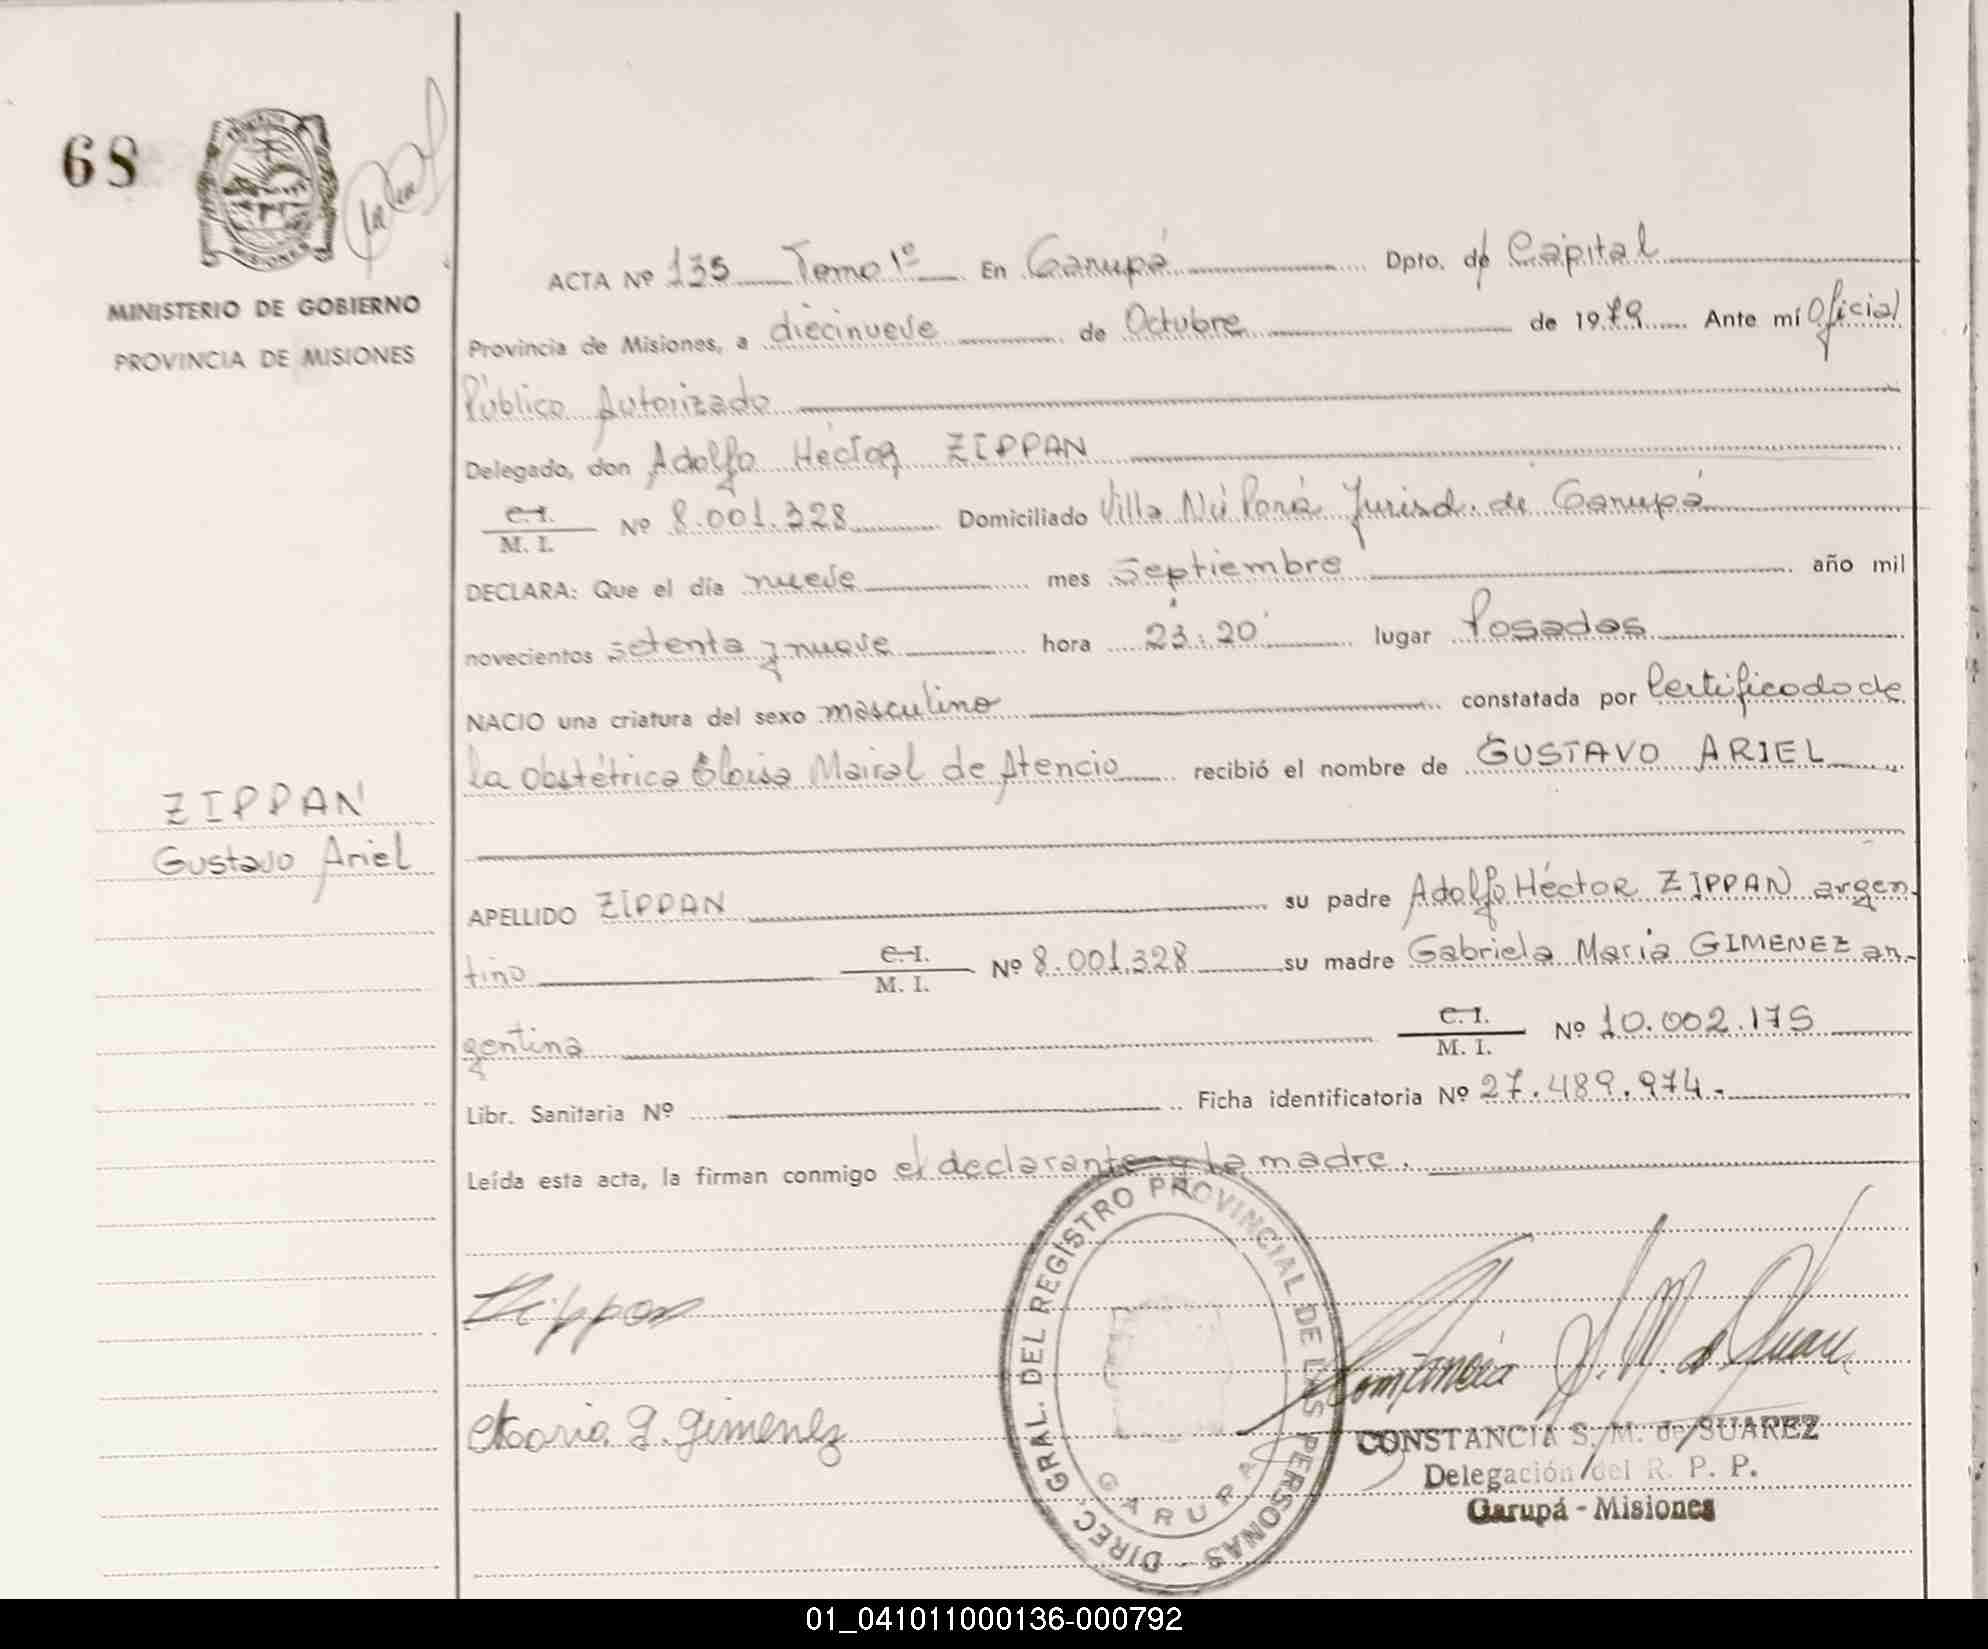 68
MINISTERIO DE GOBIERNO
PROVINCIA DE MISIONES
ACTA Nº 135 Tomo 1º En Garupá Dpto. de Capital
Provincia de Misiones, a diecinueve de Octubre de 1979 Ante mí Oficial
Público Autorizado
Delegado, don Adolfo Héctor ZIPPAN
C. I.
M. I. Nº 8.001.328 Domiciliado Villa Ñú Porá Jurisd. de Garupá
DECLARA: Que el día nueve mes septiembre año mil
novecientos setenta y nueve hora 23:20 lugar Posadas
NACIO una criatura del sexo masculino constatada por Certificado de
la obstétrica Eloisa Mairal de Atencio recibió el nombre de GUSTAVO ARIEL
ZIPPAN
Gustavo Ariel
APELLIDO ZIPPAN su padre Adolfo Héctor ZIPPAN argen-
tino C. I.
M. I. Nº 8.001.328 su madre Gabriela Maria GIMENEZ ar-
gentina C. I.
M. I. Nº 10.002.175
Libr. Sanitaria Nº Ficha identificatoria Nº 27.489.974.-
Leída esta acta, la firman conmigo el declarante y la madre.
DIREC. GRAL. DEL REGISTRO PROVINCIAL DE LAS PERSONAS -
GARUPA
Zippan
Maria G. Gimenez
Constancia S. M. de Suarez
CONSTANCIA S. M. de SUAREZ
Delegación del R. P. P.
Garupá - Misiones
01_041011000136-000792